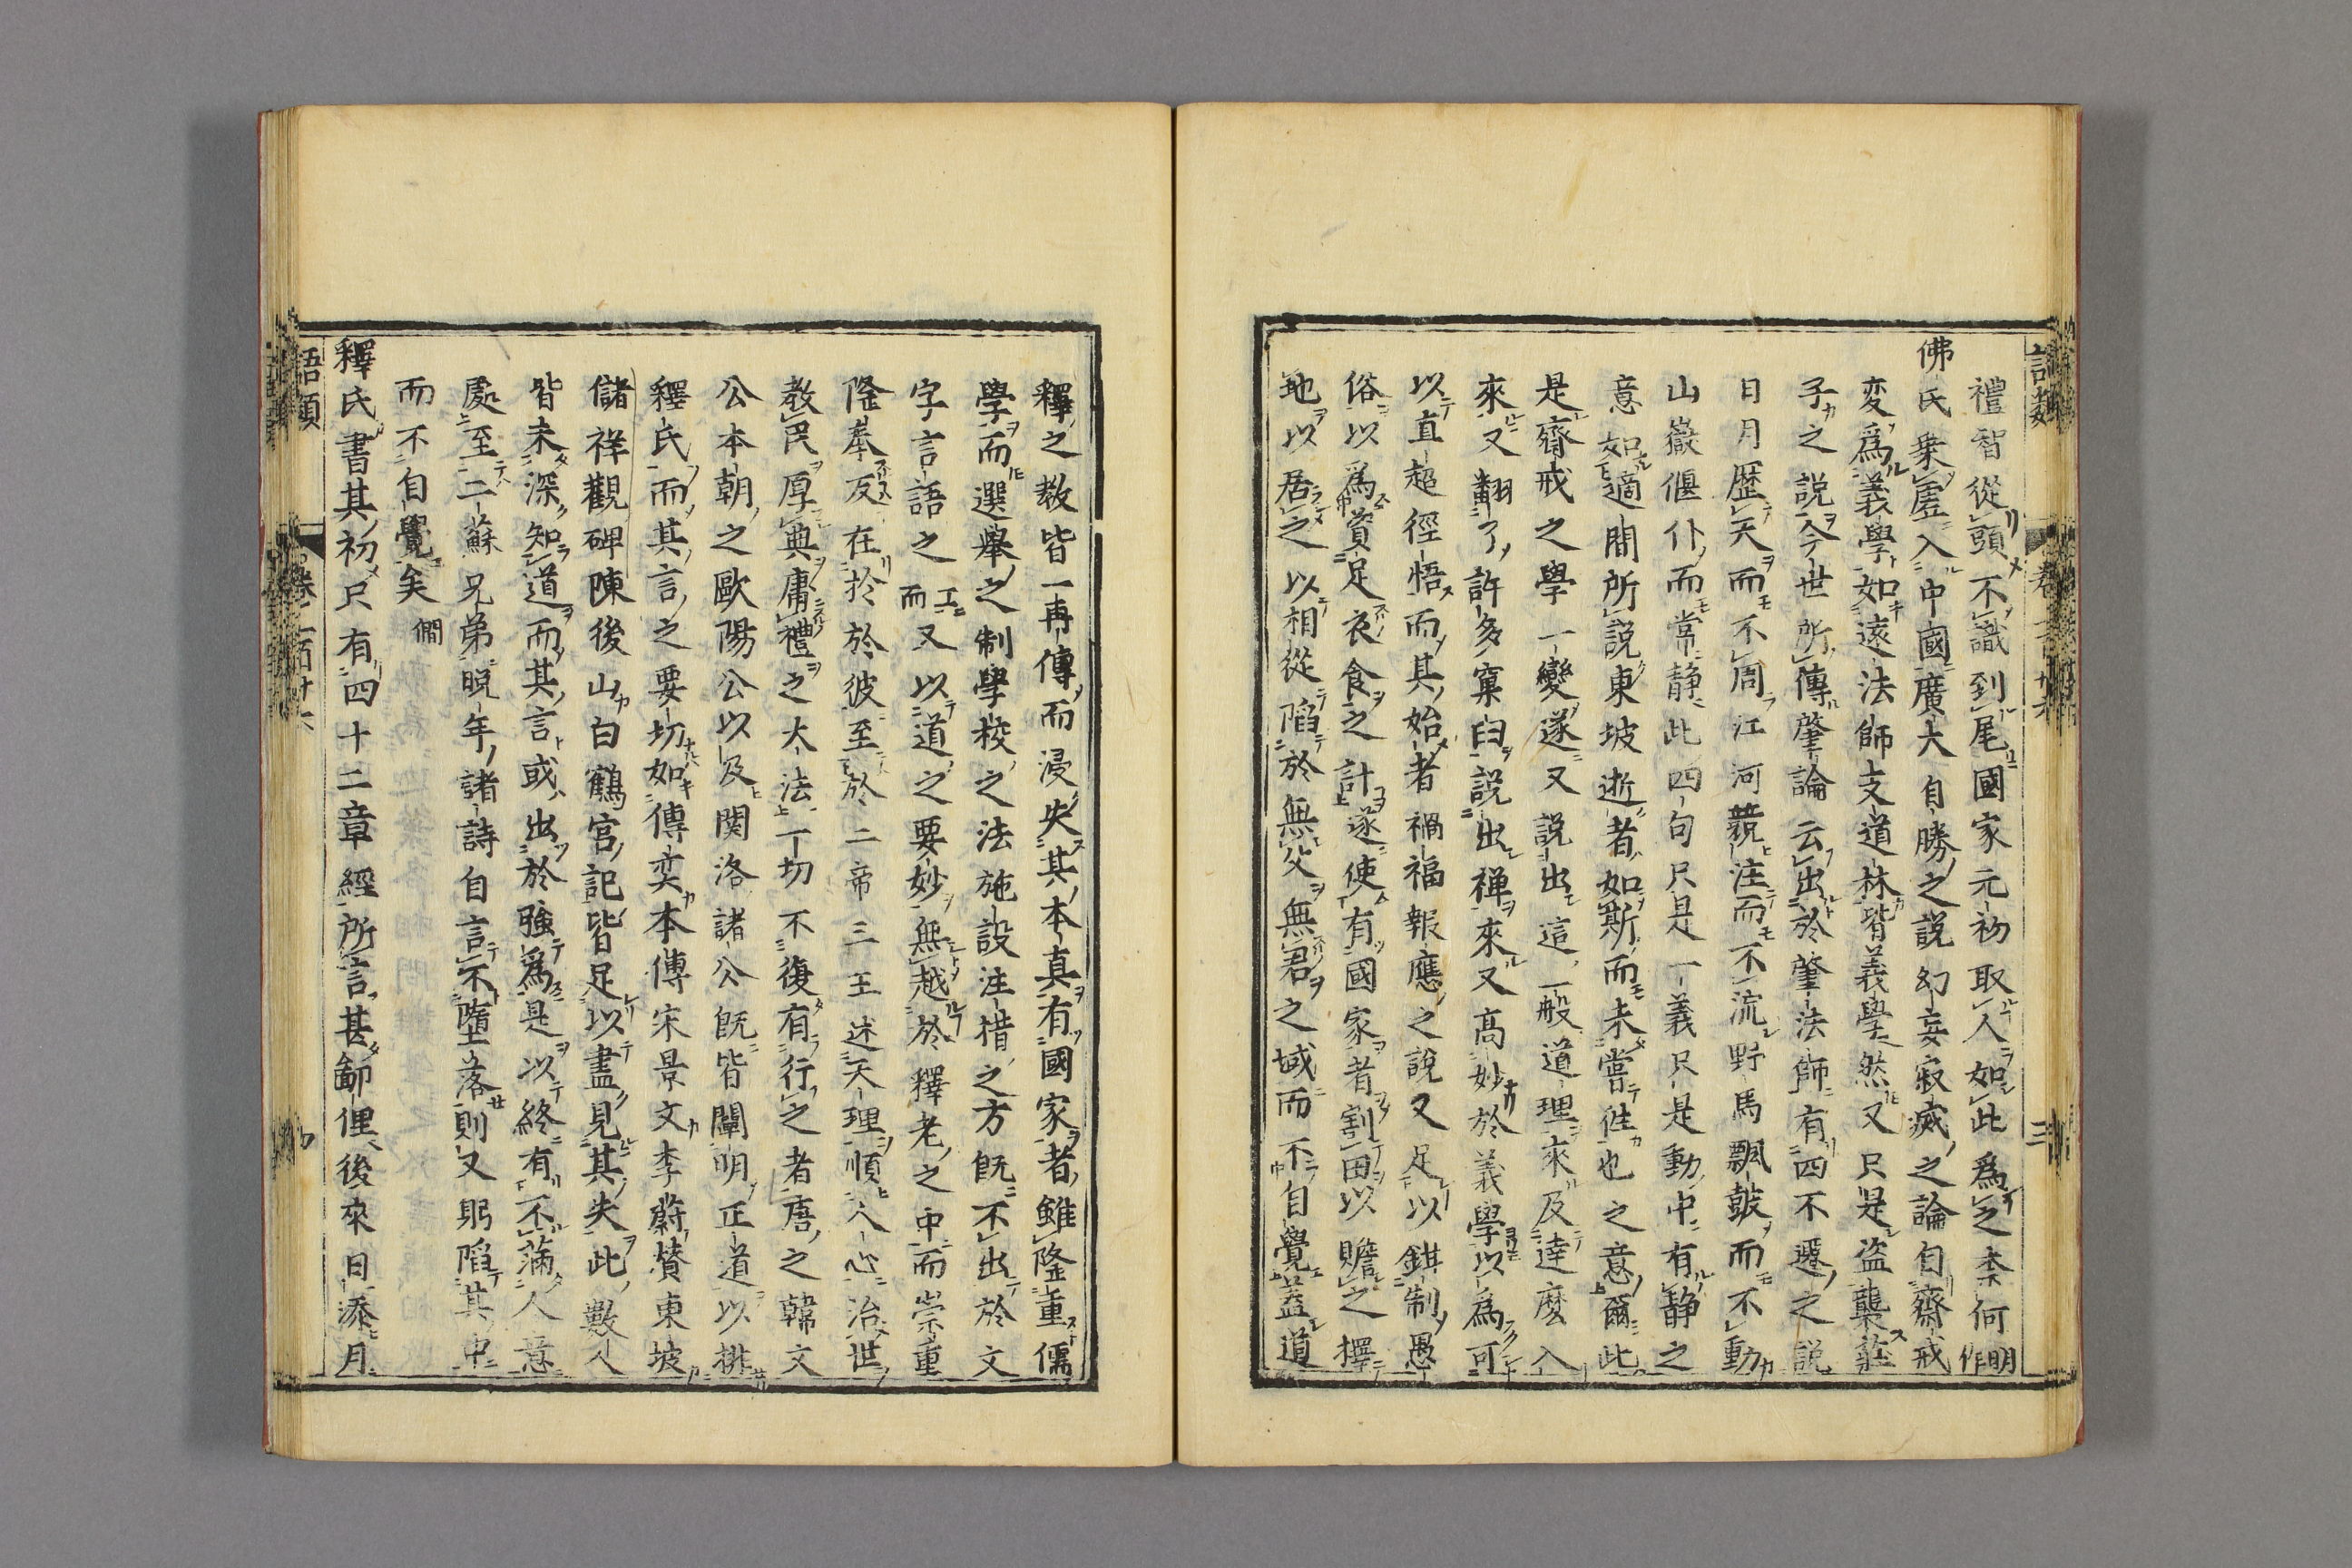 語類 卷一百廿六 三
禮智從頭不識到尾國家元初取人如此爲之柰何明作
佛氏乗虛入中國廣大自勝之説幻妄寂滅之論自齋戒
変爲義學如遠法師支道林皆義學然又只是盗襲莊
子之説今世所傳肇論云出於肇法師有四不遷之説
日月歴天而不周江河競注而不流野馬飄鼓而不動
山嶽偃仆而常静此四句只是一義只是動中有静之
意如適間所説東坡逝者如斯而未嘗徃也之意爾此
是齋戒之學一變遂又説出這一般道理來及達麽入
來又翻了許多窠臼説出禅來又高妙於義學以爲可
以直超徑悟而其始者禍福報應之説又足以鉗制愚
俗以爲資足衣食之計遂使有國家者割田以贍之擇
地以居之以相從陷於無父無君之域而不自覺葢道
釋之教皆一再傳而浸失其本真有國家者雖隆重儒
學而選舉之制學校之法施設注措之方既不出於文
字言語之工而又以道之要妙無越於釋老之中而崇重
隆奉反在於於彼至於二帝三王述天理順人心治世
教民厚典庸禮之大法一切不復有行之者唐之韓文
公本朝之歐陽公以及関洛諸公既皆闡明正道以排
釋氏而其言之要切如傳奕本傳宋景文李蔚賛東坡
儲祥觀碑陳後山白鶴宮記皆足以盡見其失此數人
皆未深知道而其言或出於强爲是以終有不滿人意
處至二蘇兄弟晩年諸詩自言不墮落則又躬陷其中
而不自覺矣 僩
釋氏書其初只有四十二章經所言甚鄙俚後來日添月
語類 卷一百廿六